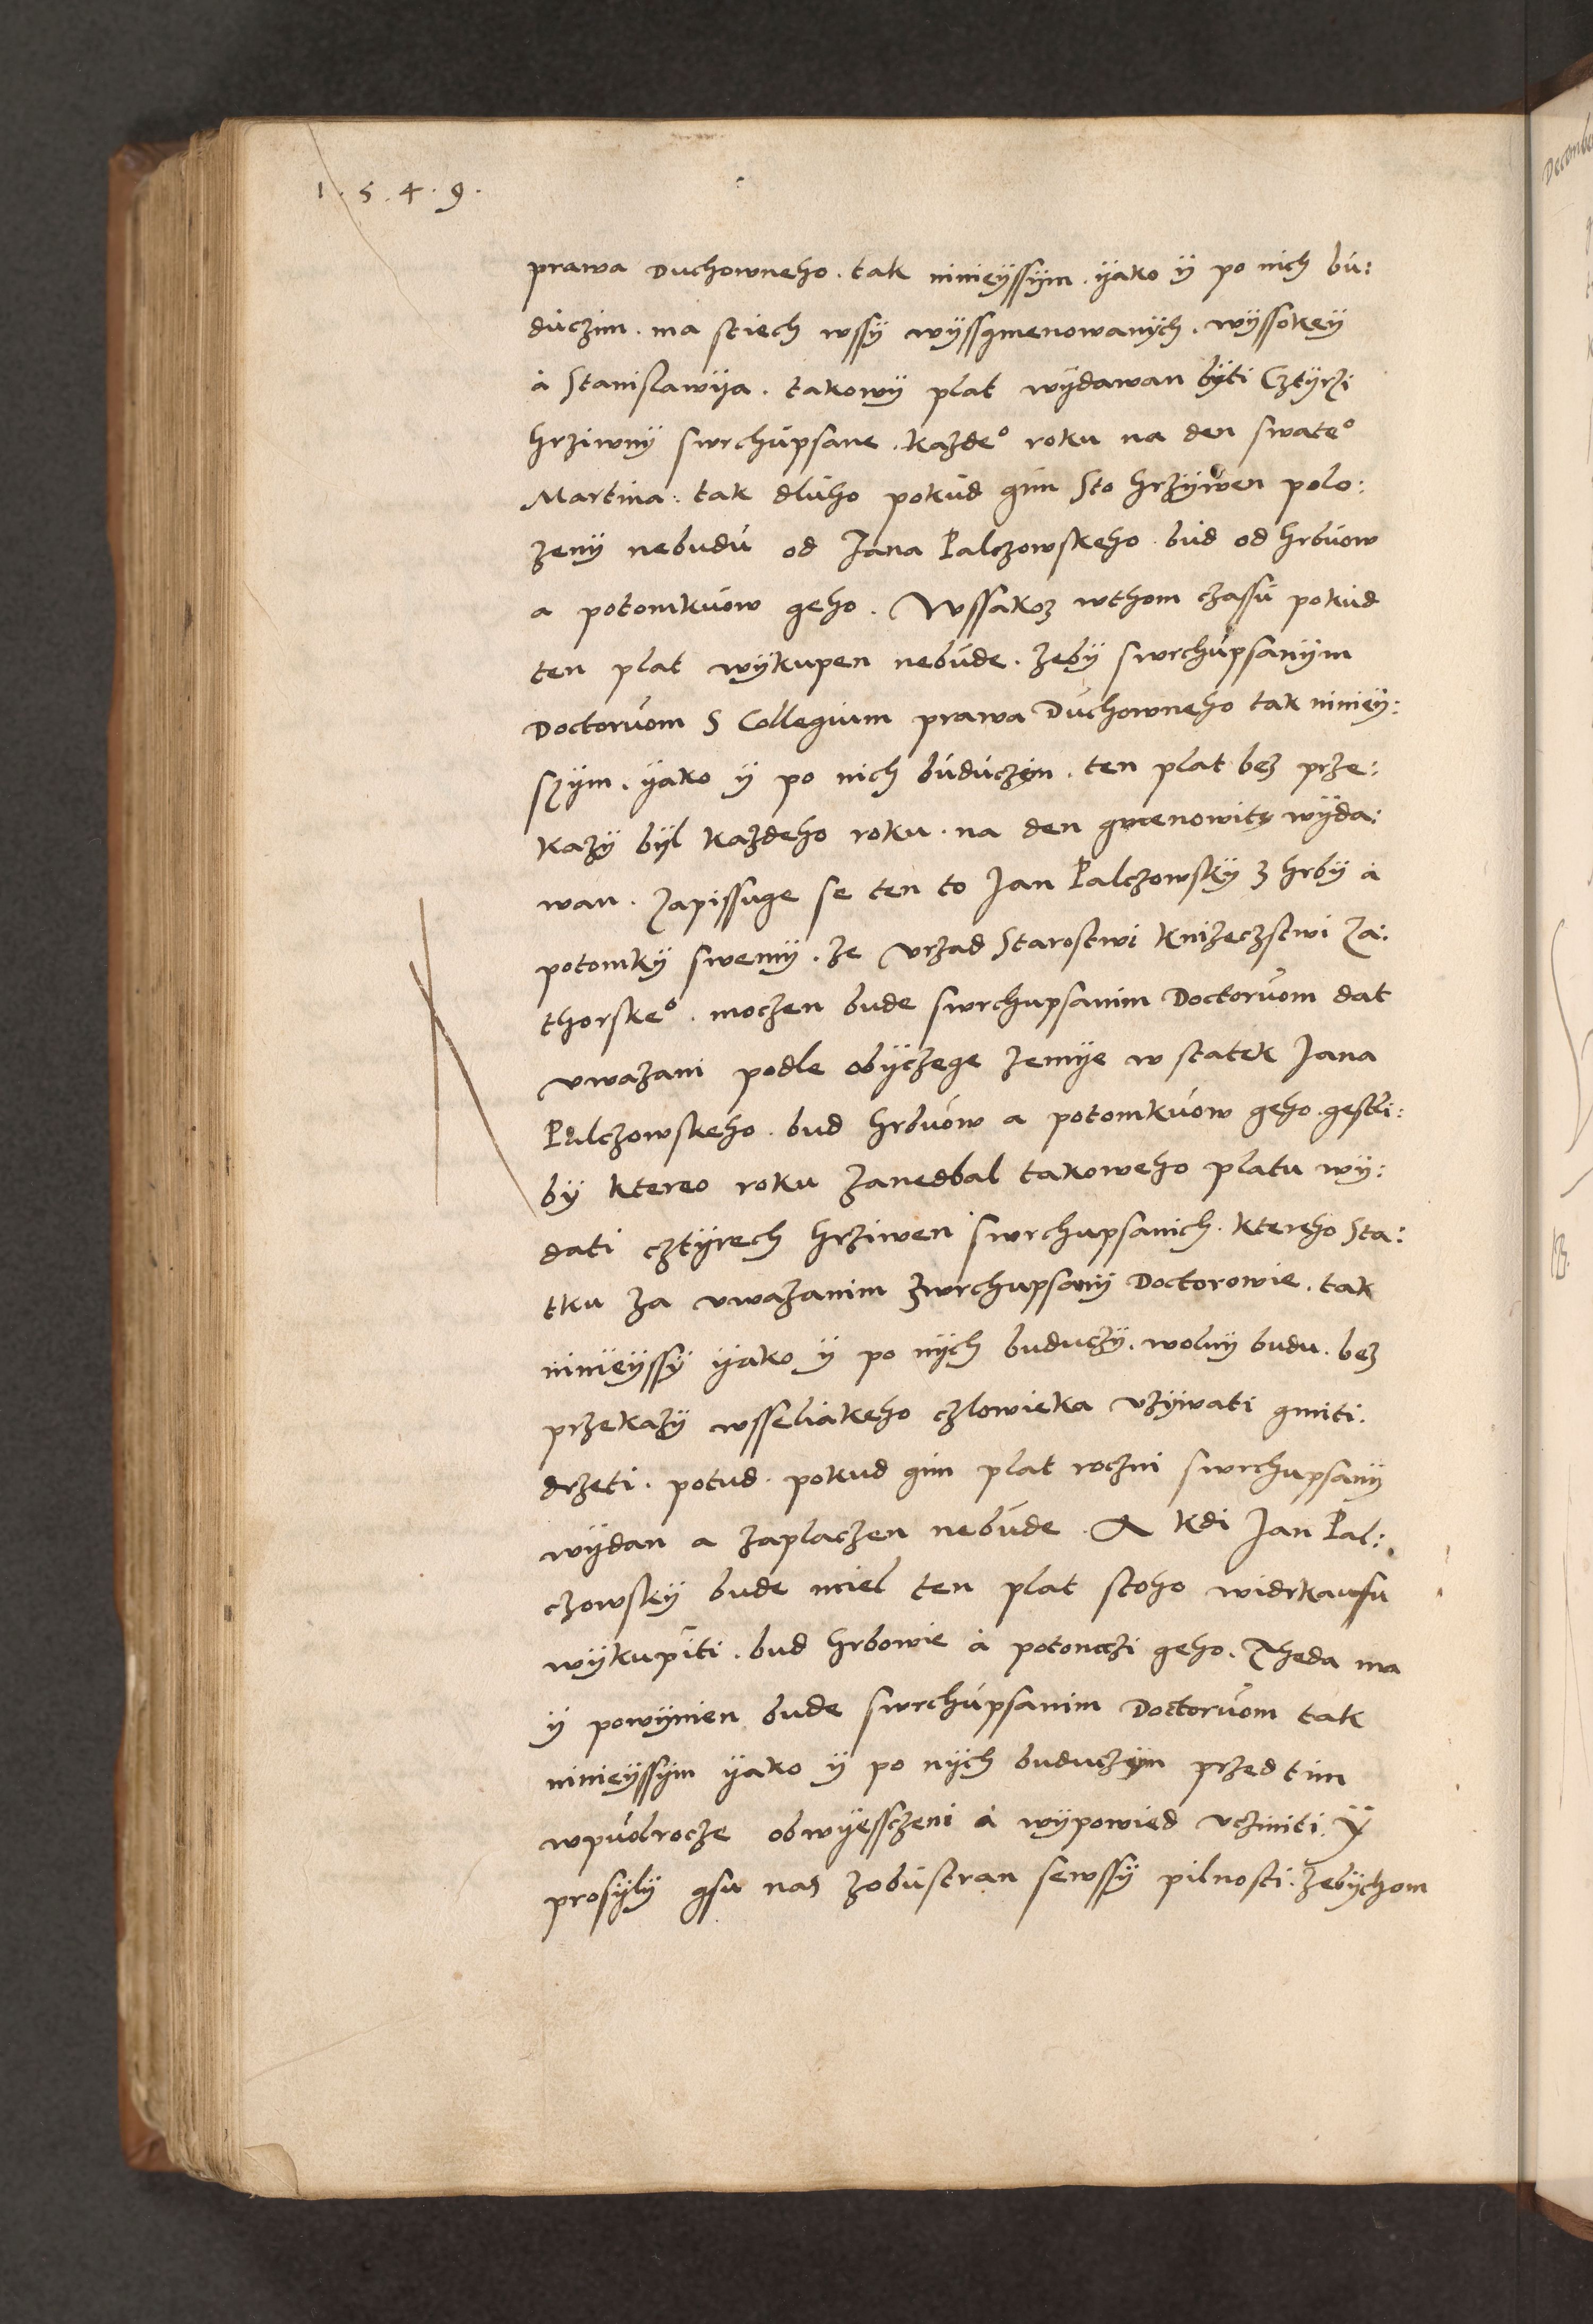 1.5.4.9.
prawa Duchowneho. tak ninieyssym. yako y po nich bu:
duczim. ma stiech wssy wyssgmenowanych. wyssokey
a Stanislawiya. takowy plat wydawan byti Cztyrzi
hrziwny swrchupsane. każdeº roku na den swateº
Martina: tak dluho pokud gim Sto hrzywen polo:
zeny nebudu od Jana Palczowskeho. bud od hrbuow
a potomkuow geho. Wssakoz wthom czassu pokud
ten plat wykupen nebude. zeby swrchupsanym
Doctoruom S Collegium prawa Duchowneho tak niniey:
szym. yako y po nich buduczym. ten plat bez prze:
kazy byl kazdeho roku. na den gmenowity wyda:
wan. Zapissuge se ten to Jan Palczowsky z hrby a
potomky swemy. ze vrzad Starostwi Knizeczstwi Za:
thorskeº. moczen bude swrchupsanim Doctoruom dat
vwazani podle obyczege zemye w statek Jana
Palczowskeho. bud hrbuow a potomkuow geho. gestli:
by ktereo roku zanedbal takoweho platu wy:
dati cztyrech hrziwen swrchupsanich. ktereho Sta:
tku za vwazanim zwrchupsany Doctorowie. tak
ninieyssy yako y po nych buduczy. wolny budu. bez
przekazy wsseliakeho czlowieka vzywati gmiti.
drzeti. potud. pokud gim plat roczni swrchupsany
wydan a zaplaczen nebude. A kdi Jan Pal:
czowsky bude miel ten plat stoho widrkaufu
wykupiti. bud hrbowie a potomczi geho. Theda ma
y powynien bude swrchupsanim Doctoruom tak
ninieyssym yako y po nych buduczym przed tim
wpuolrocze obwyessczeni a wypowied vcziniti. Y
prosyly gsu nas zobustran sewssy pilnosti. zebychom